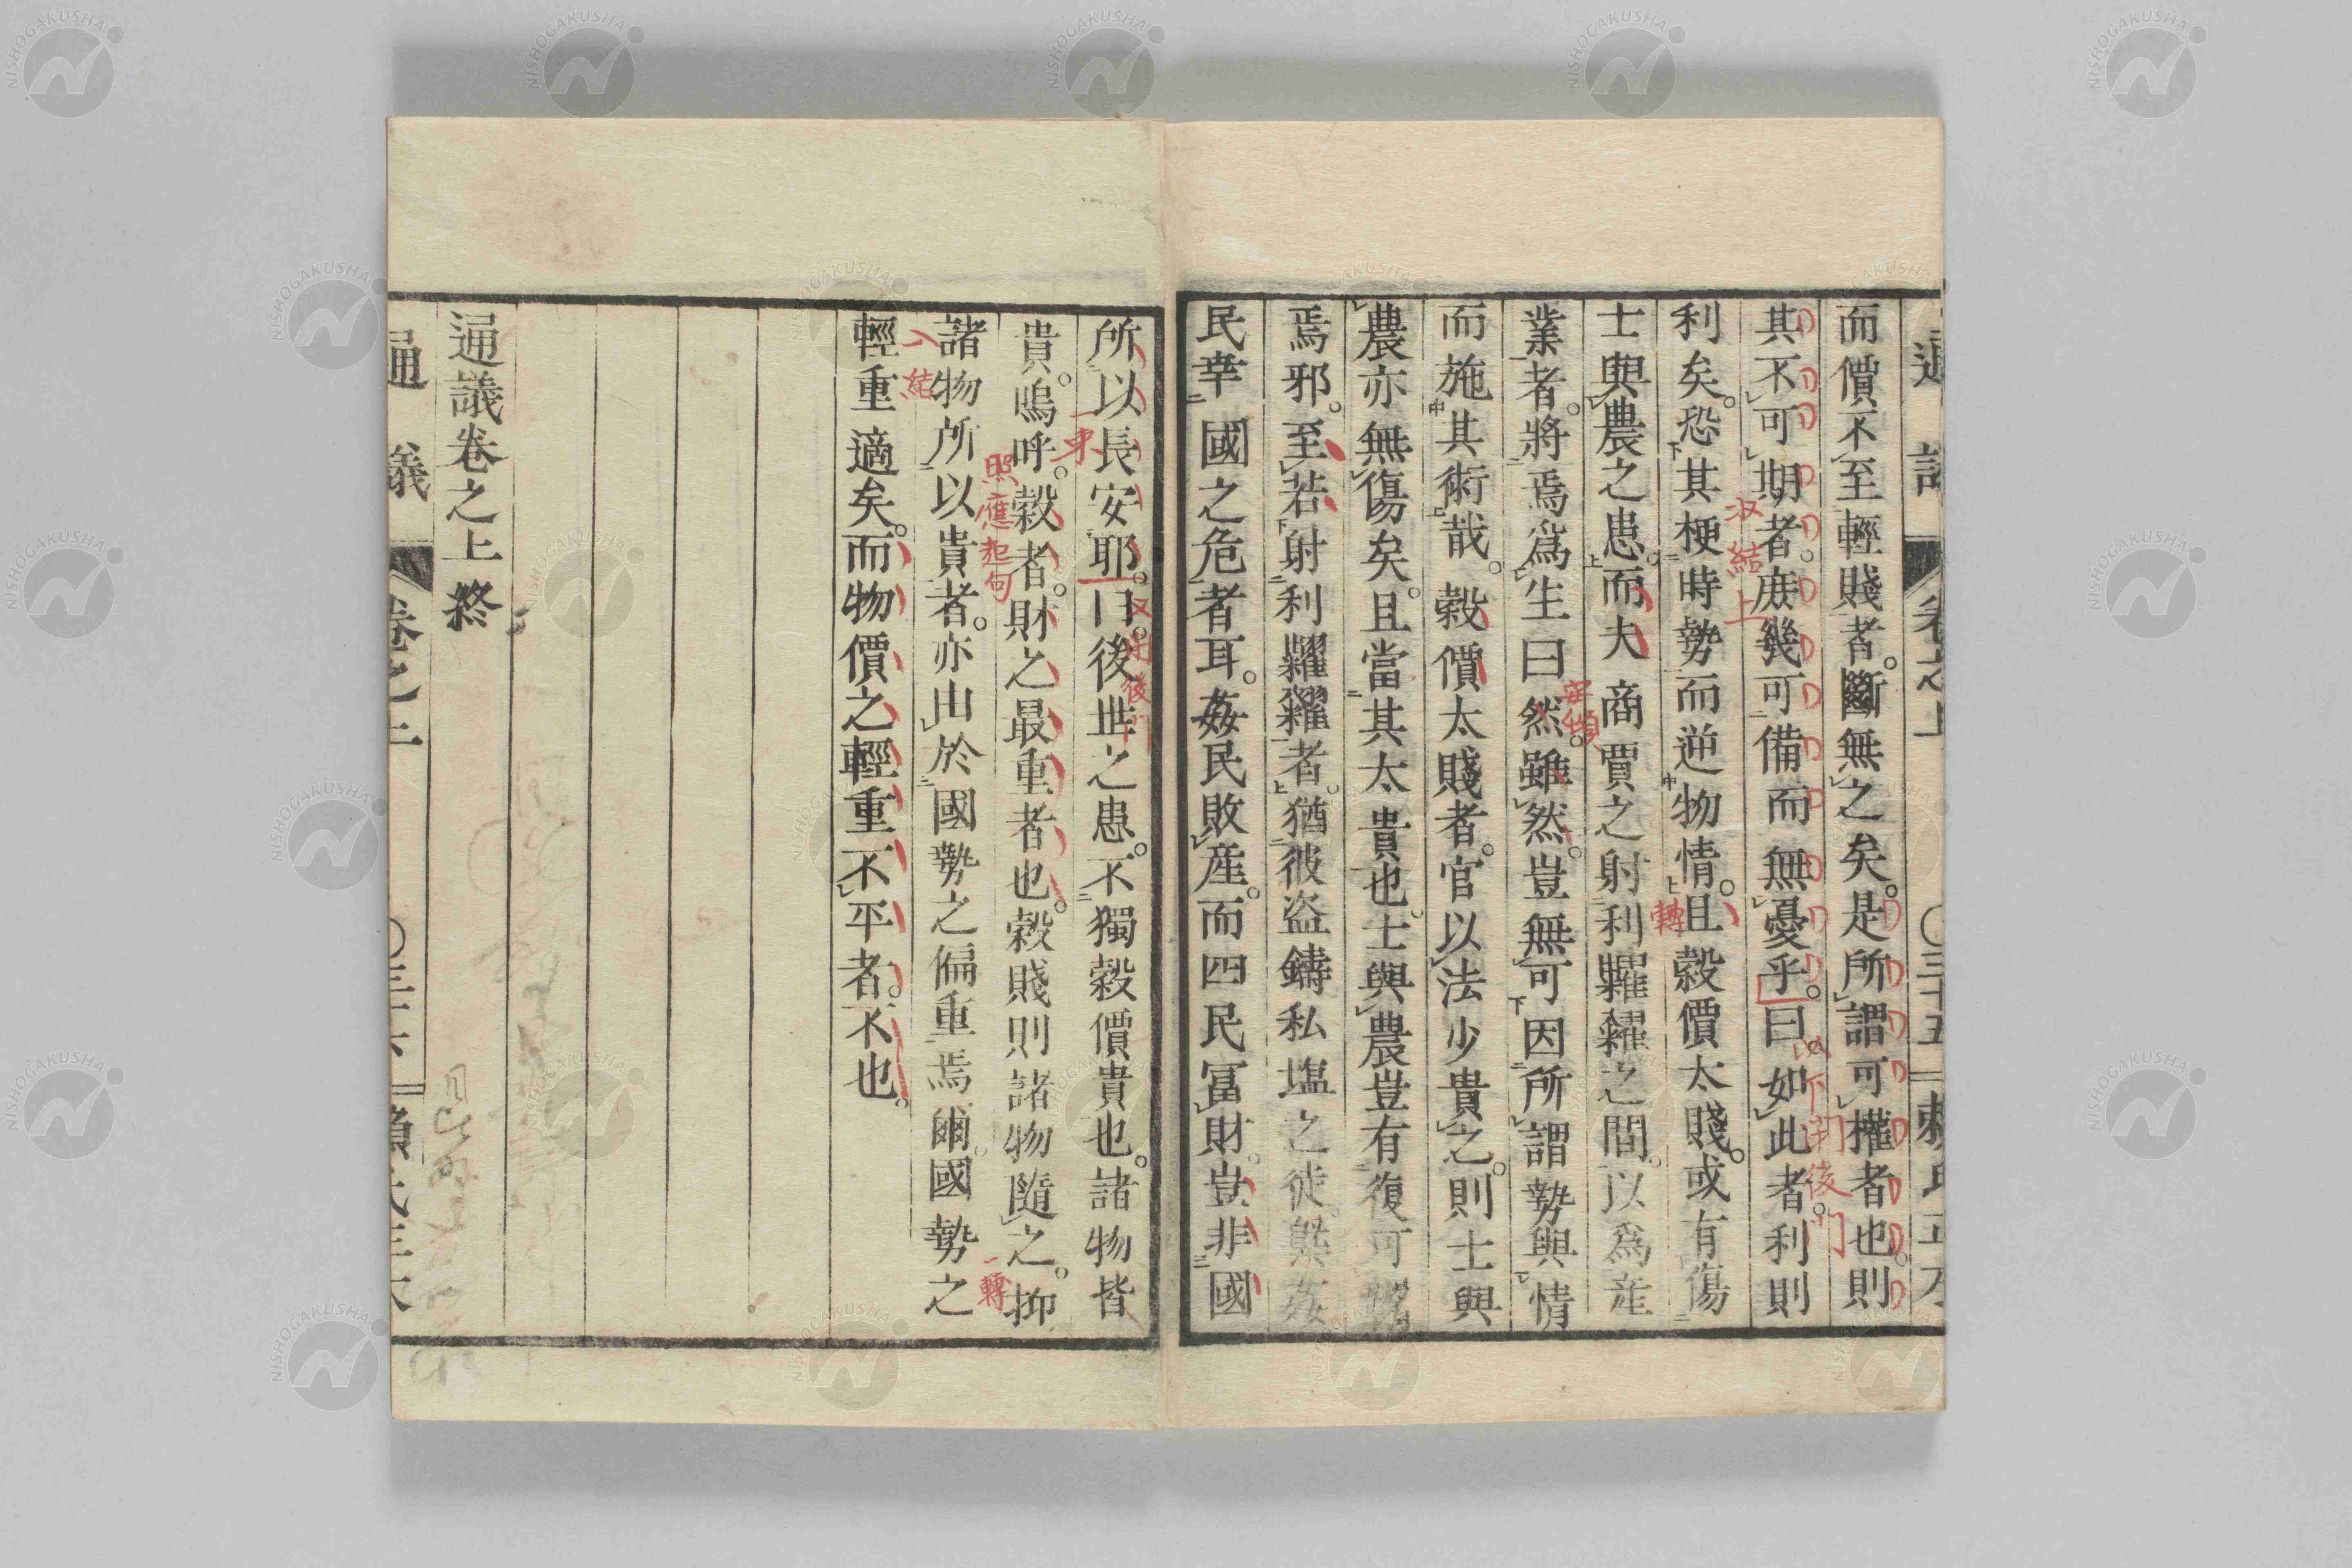 而價不至輕賤者。斷無之矣。是所謂可權者也。則
其不可期者。庶幾可備而無憂乎。曰。如此者。利則
利矣。恐其梗時勢而逆物情。且穀價太賤。或有傷
士與農之患。而夫商賈之射利糶糴之間。以爲産
業者。將焉爲生曰然。雖然。豈無可因所謂勢與情
而施其術哉。穀價太賤者。官以法少貴之。則士與
農亦無傷矣。且當其太貴也。士與農豈有復可
焉邪。至若射利糶糴者。猶彼盜鑄私塩之徒。姦
民幸國之危者耳。姦民敗産。而四民冨財。豈非國
所以長安耶。曰。後世之患。不獨穀價貴也。諸物皆
貴。嗚呼。穀者。財之最重者也。穀賤則諸物隨之。抑
諸物所以貴者。亦由於國勢之偏重焉爾。國勢之
輕重適矣。而物價之輕重不平者。不也。
通議卷之上終
卷之上
三十五
収結上
轉
以下別後門
一束
照應起句
一轉
結
NISHOGAKUSHA